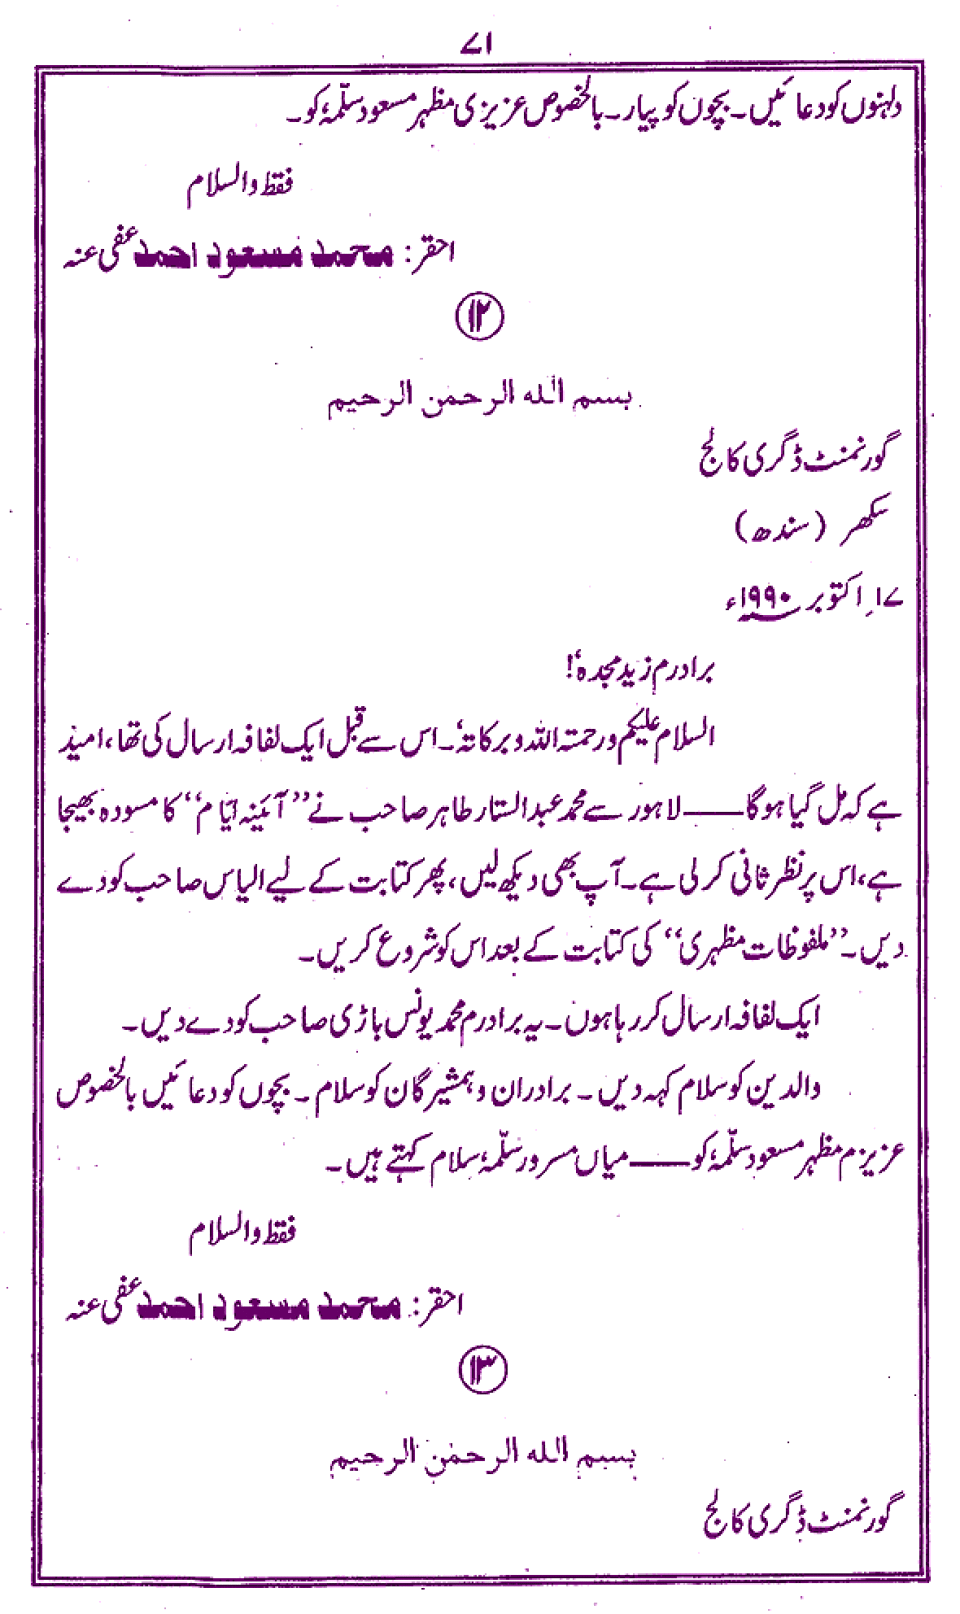 ۷۱
دلہنوں کو دعائیں۔ بچوں کو پیار۔ بالخصوص عزیزی مظہر مسعود سلّمہٗ کو۔
فقط والسلام
احقر: محمد مسعود احمد عفی عنہ
۱۲
بسم الله الرحمن الرحیم
گورنمنٹ ڈگری کالج
سکھر (سندھ)
۱۷؍ اکتوبر ۱۹۹۰ء
برادرم زید مجدہٗ!
السلام علیکم ورحمتہ اللہ وبرکاتہٗ۔ اس سے قبل ایک لفافہ ارسال کی تھا، امید
ہے کہ مل گیا ہوگا —— لاہور سے محمد عبدالستار طاہر صاحب نے ’’آئینہ ایّام‘‘ کا مسودہ بھیجا
ہے، اس پر نظر ثانی کر لی ہے۔ آپ بھی دیکھ لیں، پھر کتابت کے لیے الیاس صاحب کو دے
دیں۔ ’’ملفوظات مظہری‘‘ کی کتابت کے بعد اس کو شروع کریں۔
ایک لفافہ ارسال کر رہا ہوں۔ یہ برادرم محمد یونس باڑی صاحب کو دے دیں۔
والدین کو سلام کہہ دیں۔ برادران و ہمشیرگان کو سلام۔ بچوں کو دعائیں بالخصوص
عزیزم مظہر مسعود سلّمہٗ کو —— میاں مسرور سلّمہٗ سلام کہتے ہیں۔
فقط والسلام
احقر: محمد مسعود احمد عفی عنہ
۱۳
بسم الله الرحمن الرحیم
گورنمنٹ ڈگری کالج